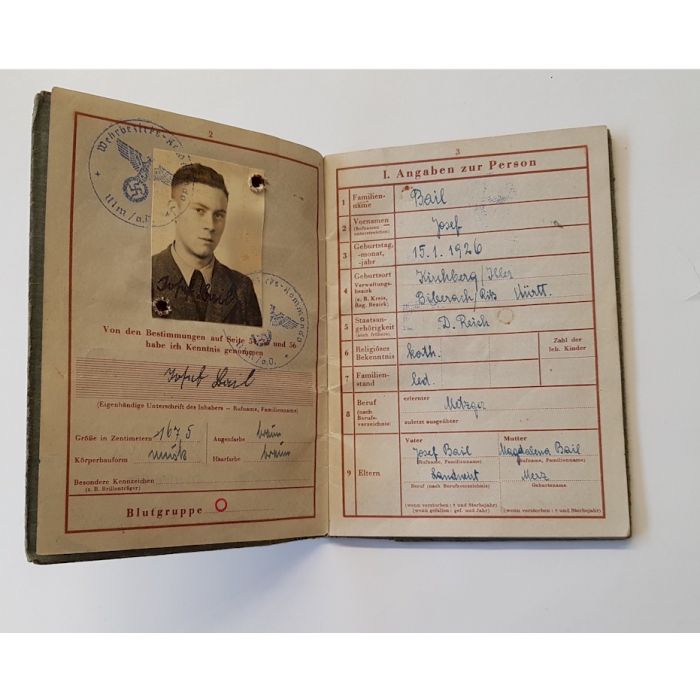 2
Wehrbezirks-K
Ulm/a.D.
Josef Bail
Von den Bestimmungen auf Seite 5 und 56
habe ich Kenntnis genommen
Josef Bail
(Eigenhändige Unterschrift des Inhabers — Rufname, Familienname)
Größe in Zentimetern 167,5
Augenfarbe braun
Körperbauform
Haarfarbe braun
Besondere Kennzeichen
(z. B. Brillenträger)
Blutgruppe O
3
I. Angaben zur Person
1 Familien-
name
Bail
2 Vornamen
(Rufnamen
unterstreichen)
Josef
3 Geburtstag,
-monat,
-jahr
15.1.1926
4 Geburtsort
Verwaltungs-
bezirk
(z. B. Kreis,
Reg. Bezirk)
Kirchberg/Iller
Biberach/Riß Württ.
5 Staats-
angehörigkeit
(auch frühere)
D. Reich
6 Religiöses
Bekenntnis
kath.
Zahl der
leb. Kinder
7 Familien-
stand
led.
8 Beruf
(nach
Berufs-
verzeichnis)
erlernter
Metzger
zuletzt ausgeübter
9 Eltern
Vater
Josef Bail
(Rufname, Familienname)
Landwirt
Beruf (nach Berufsverzeichnis)
(wenn verstorben: † und Sterbejahr)
(wenn gefallen: gef. und Jahr)
Mutter
Magdalena Bail
(Rufname, Familienname)
Merz
Geburtsname
(wenn verstorben: † und Sterbejahr)